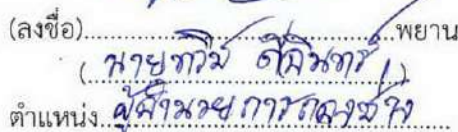 (ลงชื่อ)..............................พยาน
(นายทวีป ดีอินทร์)
ตำแหน่ง ผู้อำนวยการกองช่าง